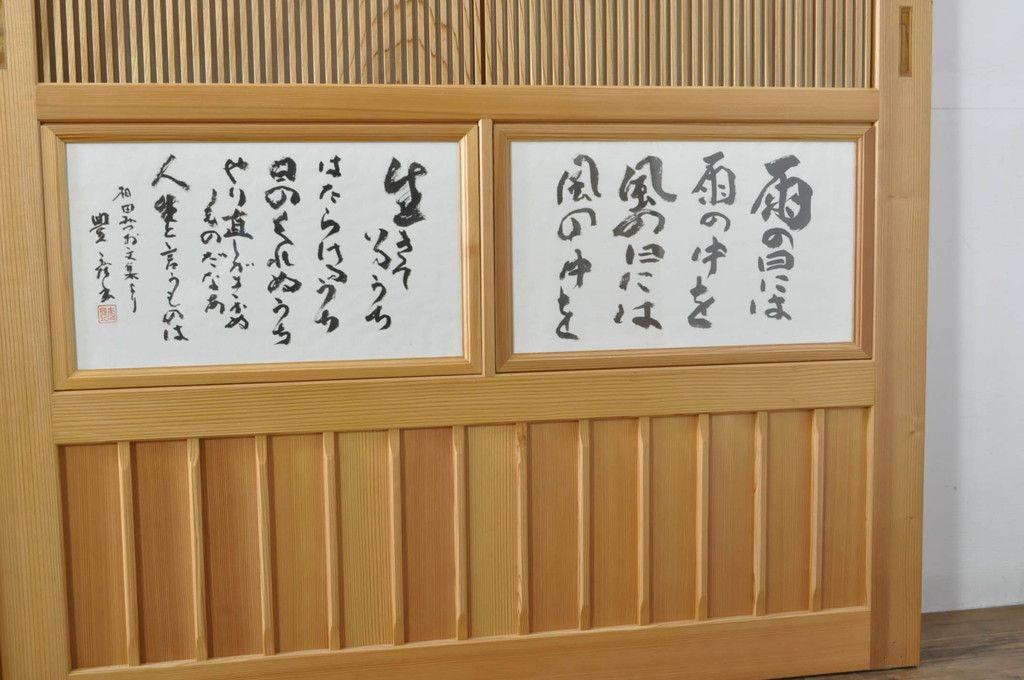 雨の日には
雨の中を
風の日には
風の中を
生きて
いるうち
はたらけるうち
日のくれぬうち
やり直しがきかぬ
ものだなあ
人生と言うものは
相田みつお文集より